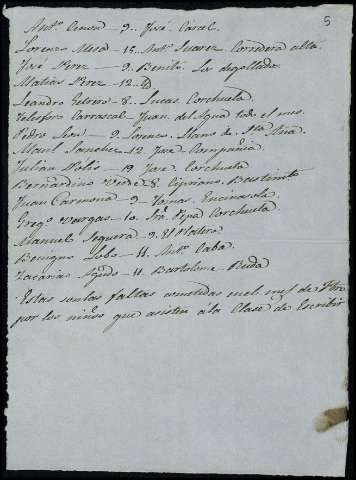 5
Ant.º – 9. José. Carcel.
Lorenzo Mesa – 15. Ant.º Suarez. Corredera alta.
José Perez – 9. Benito. Los degollado
Matias Perez – 12.
Leandro – 8. Lucas. Corchuela.
Telesforo Carrascal – Juan. del Agua todo el mes.
Pedro – 9. Lorenzo. Llano de Sta. Ana.
Man.l Sanchez – 12. José Compañia.
Julian Solis – 19 José. Corchuela
Bernardino Verde 8. Cipriano. Bustinto
Juan Carmona – 9 – Tomas. Encinasola.
Greg.º Vargas – 10. Fra. Pepa Corchuela.
Manuel Seguera – 9. El Platero.
Benigno Lobo – 11. Ant.º Caba.
Zacarias – 11. Bartolome Rueda
Estas son las faltas cometidas en el mes de
por los niños que asisten á la Clase de Escribir